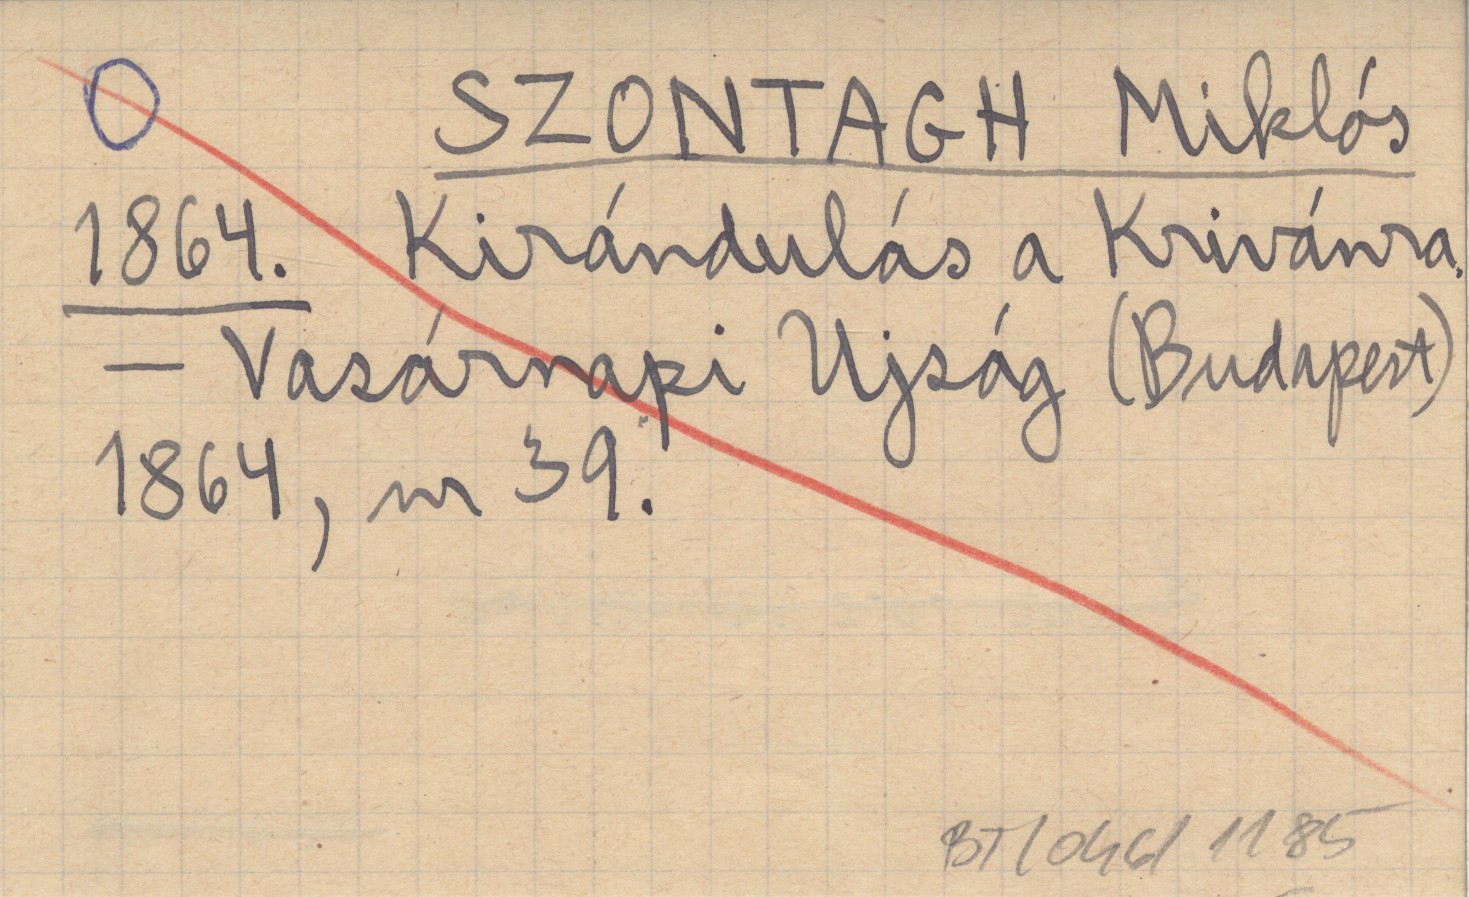 SZONTAGH Miklós
1864. Kirándulás a Krivánra.
— Vasárnapi Ujság (Budapest)
1864, nr 39.
BT/046/1185